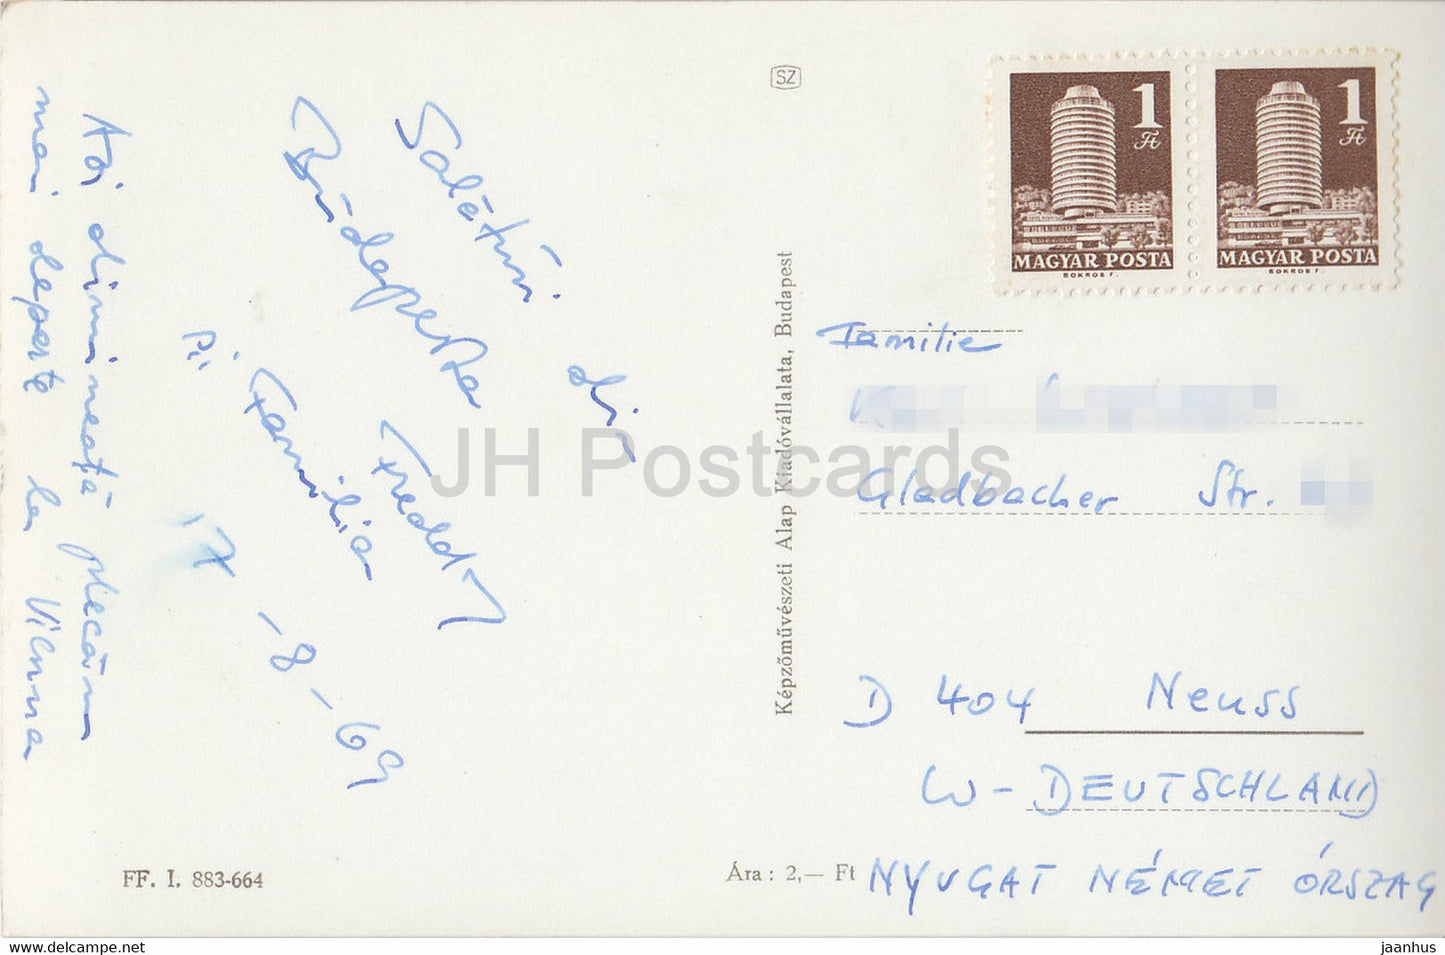 Salutări din
Budapesta
Freddy
și Familia
17-8-69
Azi dimineață plecăm
mai departe la Viena
FF. I. 883-664
SZ
Képzőművészeti Alap Kiadóvállalata, Budapest
Ára: 2,— Ft
1 Ft
MAGYAR POSTA
BOKROS F.
1 Ft
MAGYAR POSTA
BOKROS F.
Familie
Gladbacher Str.
D 404 Neuss
W-DEUTSCHLAND
NYUGAT NÉMET ÓRSZAG
JH Postcards
https://www.ebay.com/usr/jaanhus